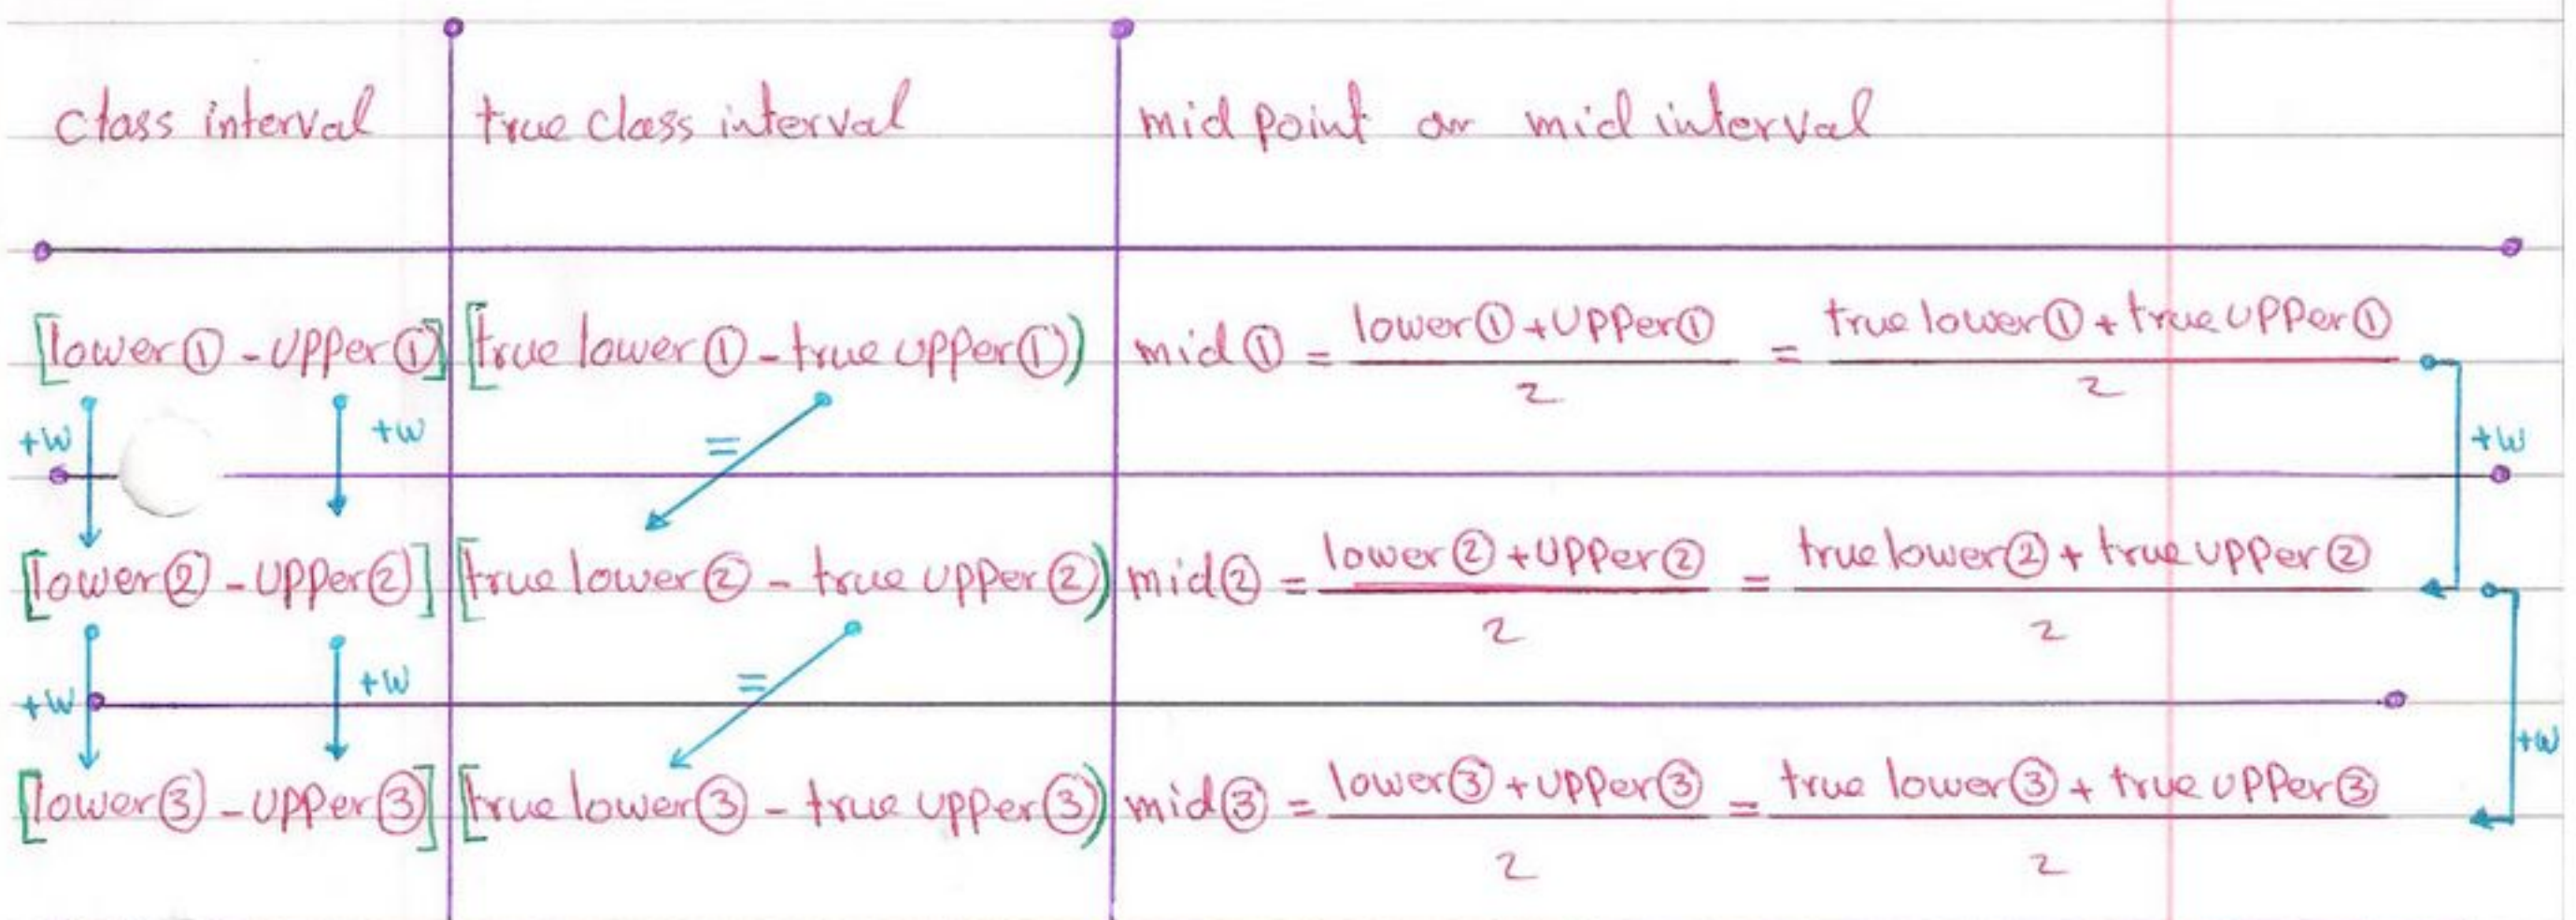 class interval true class interval mid point or mid interval
[lower① - upper①] [true lower① - true upper①) mid① = lower① + upper① / 2 = true lower① + true upper① / 2
+w +w = +w
[lower② - upper②] [true lower② - true upper②) mid② = lower② + upper② / 2 = true lower② + true upper② / 2
+w +w = +w
[lower③ - upper③] [true lower③ - true upper③) mid③ = lower③ + upper③ / 2 = true lower③ + true upper③ / 2